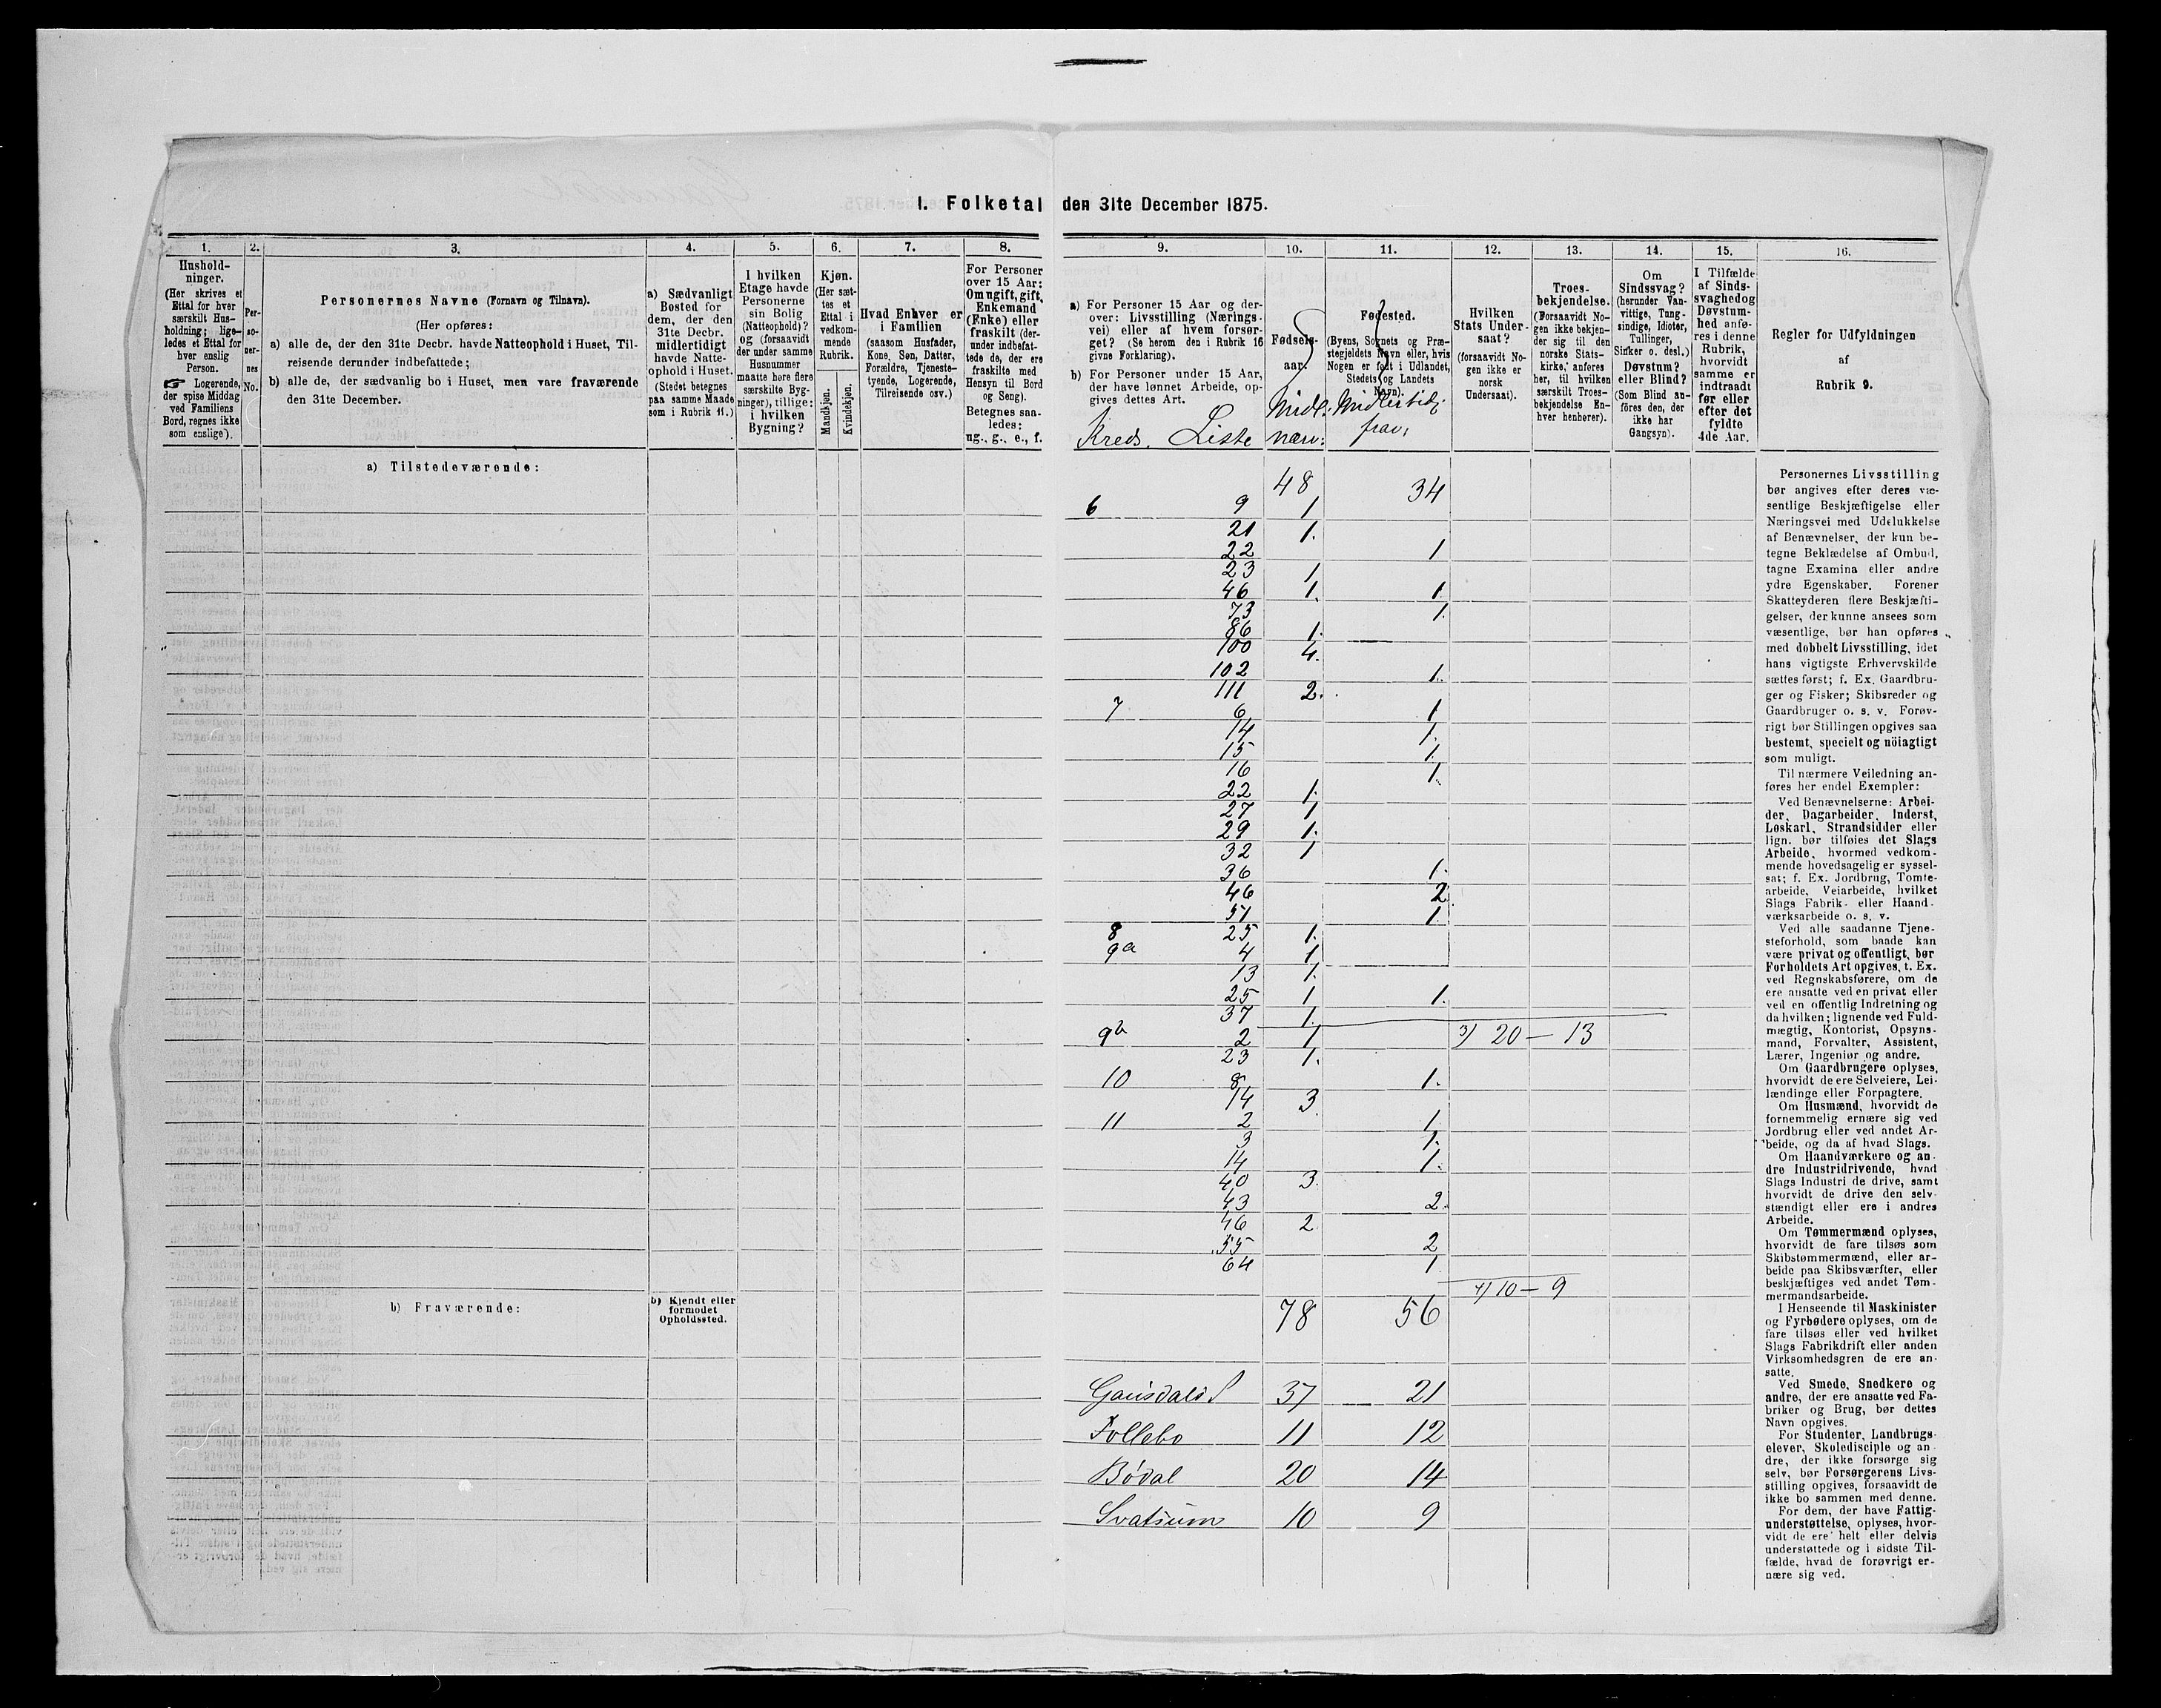 I. Folketal den 31te December 1875.
1.
Hushold-
ninger.
(Her skrives et
Ettal for hver
særskilt Hus-
holdning; lige-
ledes et Ettal for
hver enslig
Person.
☞ Logerende,
der spise Middag
ved Familiens
Bord, regnes ikke
som enslige).
2.
Per-
so-
ner-
nes
No.
3.
Personernes Navne (Fornavn og Tilnavn).
(Her opføres:
a) alle de, der den 31te Decbr. havde Natteophold i Huset, Til-
reisende derunder indbefattede;
b) alle de, der sædvanlig bo i Huset, men vare fraværende
den 31te December.
4.
a) Sædvanligt
Bosted for
dem, der den
31te Decbr.
midlertidigt
havde Natte-
ophold i Huset.
(Stedet betegnes
paa samme Maade
som i Rubrik 11.)
5.
I hvilken
Etage havde
Personerne
sin Bolig
(Natteophold)?
og (forsaavidt
der under samme
Husnummer
maatte høre flere
særskilte Byg-
ninger), tillige:
i hvilken
Bygning?
6.
Kjøn.
(Her sæt-
tes et
Ettal i
vedkom-
mende
Rubrik.
Mandkjøn.
Kvindekjøn.
7.
Hvad Enhver er
i Familien
(saasom Husfader,
Kone, Søn, Datter,
Forældre, Tjeneste-
tyende, Logerende,
Tilreisende osv.)
8.
For Personer
over 15 Aar:
Om ugift, gift,
Enkemand
(Enke) eller
fraskilt (der-
under indbefat-
tede de, der ere
fraskilte med
Hensyn til Bord
og Seng).
Betegnes saa-
ledes:
ug., g., e., f.
9.
a) For Personer 15 Aar og der-
over: Livsstilling (Nærings-
vei) eller af hvem forsør-
get? (Se herom den i Rubrik 16
givne Forklaring).
b) For Personer under 15 Aar,
der have lønnet Arbeide, op-
gives dettes Art.
Kreds. Liste
10.
Fødsels-
aar.
Midl.
nærv:
11.
Fødested.
(Byens, Sognets og Præ-
stegjeldets Navn eller, hvis
Nogen er født i Udlandet,
Stedets og Landets
Navn).
Midlertidi
frav.
12.
Hvilken
Stats Under-
saat?
(forsaavidt No-
gen ikke er
norsk
Undersaat).
13.
Troes-
bekjendelse.
(Forsaavidt No-
gen ikke bekjen-
der sig til den
norske Stats-
kirke, anføres
her, til hvilken
særskilt Troes-
bekjendelse En-
hver henhører).
14.
Om
Sindssvag?
(herunder Van-
vittige, Tung-
sindige, Idioter,
Tullinger,
Sinker o. desl.)
Døvstum?
eller Blind?
(Som Blind an-
føres den, der
ikke har
Gangsyn).
15.
I Tilfælde
af Sinds-
svaghed og
Døvstum-
hed anfø-
res i denne
Rubrik,
hvorvidt
samme er
indtraadt
før eller
efter det
fyldte
4de Aar.
16.
Regler for Udfyldningen
af
Rubrik 9.
a) Tilstedeværende:
48 34
6 9 1
21 1.
22 1
23 1
46 1. 1.
73 1.
86 1.
100 4.
102 1.
111 2.
7 6 1
14 1.
15 1.
16 1.
22 1.
27 1
29 1.
32 1
36 1.
46 2
51 1.
8 25 1.
9a 4 1
13 1.
25 1 1.
37 1.
9b 2 1 3) 20 — 13
23 1.
10 8 1.
14 3
11 2 1.
3 1.
14 1.
40 3.
43 2.
46 2
55 2
64 1
4) 10 — 9
78 56
Gausdals S 37 21
Follebo 11 12
Bødal 20 14
Svatsum 10 9
b) Fraværende:
b) Kjendt eller
formodet
Opholdssted.
Personernes Livsstilling
bør angives efter deres væ-
sentlige Beskjæftigelse eller
Næringsvei med Udelukkelse
af Benævnelser, der kun be-
tegne Beklædelse af Ombud,
tagne Examina eller andre
ydre Egenskaber. Forener
Skatteyderen flere Beskjæfti-
gelser, der kunne ansees som
væsentlige, bør han opføres
med dobbelt Livsstilling, idet
hans vigtigste Erhvervskilde
sættes først; f. Ex. Gaardbru-
ger og Fisker; Skibsreder og
Gaardbruger o. s. v. Forøv-
rigt bør Stillingen opgives saa
bestemt, specielt og nöiagtigt
som muligt.
Til nærmere Veiledning an-
føres her endel Exempler:
Ved Benævnelserne: Arbei-
der, Dagarbeider, Inderst,
Løskarl, Strandsidder eller
lign. bør tilføies det Slags
Arbeide, hvormed vedkom-
mende hovedsagelig er syssel-
sat; f. Ex. Jordbrug, Tomte-
arbeide, Veiarbeide, hvilket
Slags Fabrik- eller Haand-
værksarbeide o. s. v.
Ved alle saadanne Tjene-
steforhold, som baade kan
være privat og offentligt, bør
Forholdets Art opgives, t. Ex.
ved Regnskabsførere, om de
ere ansatte ved en privat eller
ved en offentlig Indretning og
da hvilken; lignende ved Fuld-
mægtig, Kontorist, Opsyns-
mand, Forvalter, Assistent,
Lærer, Ingeniør og andre.
Om Gaardbrugere oplyses,
hvorvidt de ere Selveiere, Lei-
lændinge eller Forpagtere.
Om Husmænd, hvorvidt de
fornemmelig ernære sig ved
Jordbrug eller ved andet Ar-
beide, og da af hvad Slags.
Om Haandværkere og an-
dre Industridrivende, hvad
Slags Industri de drive, samt
hvorvidt de drive den selv-
stændigt eller ere i andres
Arbeide.
Om Tømmermænd oplyses,
hvorvidt de fare tilsøs som
Skibstømmermænd, eller ar-
beide paa Skibsværfter, eller
beskjæftiges ved andet Tøm-
mermandsarbeide.
I Henseende til Maskinister
og Fyrbødere oplyses, om de
fare tilsøs eller ved hvilket
Slags Fabrikdrift eller anden
Virksomhedsgren de ere an-
satte.
Ved Smede, Snedkere og
andre, der ere ansatte ved Fa-
briker og Brug, bør dettes
Navn opgives.
For Studenter, Landbrugs-
elever, Skoledisciple og an-
dre, der ikke forsørge sig
selv, bør Forsørgerens Livs-
stilling opgives, forsaavidt de
ikke bo sammen med denne.
For dem, der have Fattig-
understøttelse, oplyses, hvor-
vidt de ere helt eller delvis
understøttede og i sidste Til-
fælde, hvad de forøvrigt er-
nære sig ved.